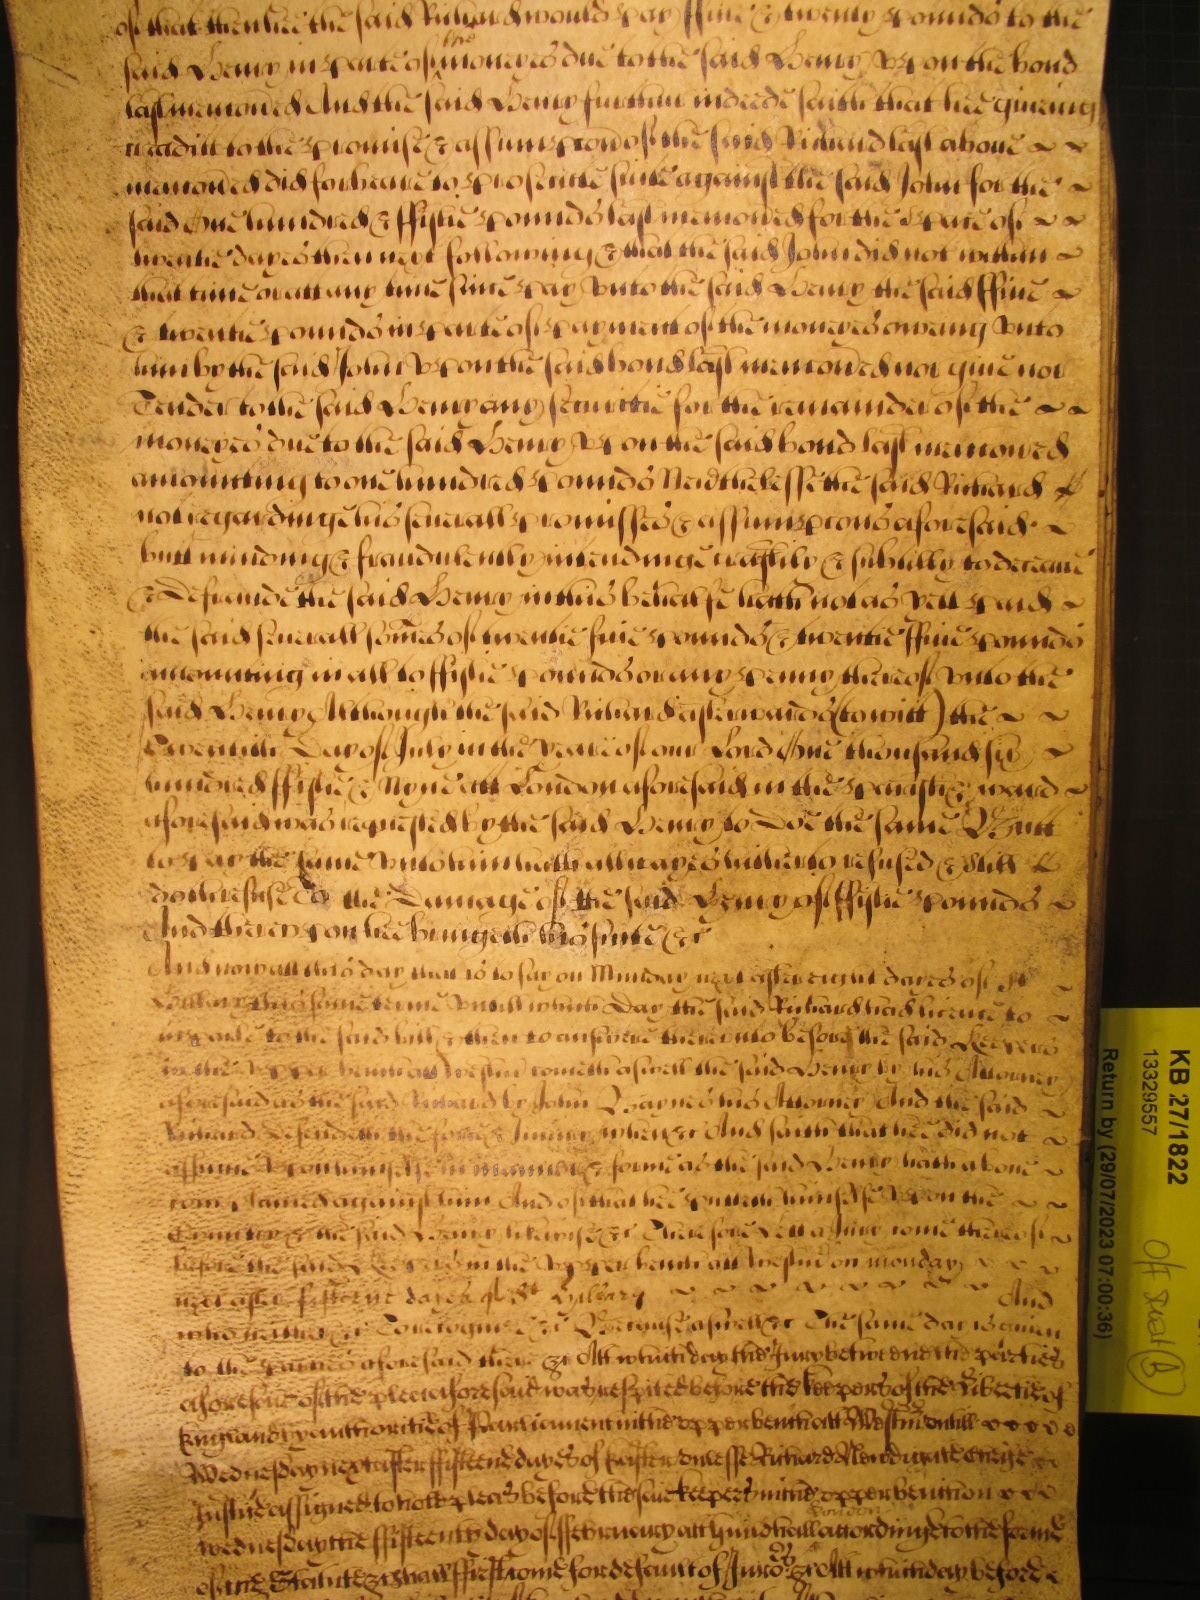 of that then hee the said Richard would pay ffive & twenty pounds to the
said Henry in parte of the moneyes due to the said Henry vpon the bond
last menconed And the said Henry further indeede saith that hee giveing
creditt to the promise & assumpcon of the said Richard last above
menconed did forbeare to prosecute suite against the said John for the
said One hundred & ffiftie pounds last menconed for the space of
twentie dayes then next following & that the said John did not within
that time or att any time since pay vnto the said Henry the said ffive
& twentie pounds in parte of payment of the moneyes oweing vnto
him by the said John vpon the said bond last menconed nor give nor
Tender to the said Henry any securitie for the remainder of the
moneyes due to the said Henry vpon the said bond last menconed
amounting to one hundred pounds Neverthelesse the said Richard
not regardinge his severall promisses & assumpcons aforesaid
butt minding & fraudulently intendinge craftily & subtilly to deceave
& Defraude the said Henry in this behalfe hath not as yett paid
the said severall somes of twentie five pounds & twentie ffive pounds
amounting in all to ffiftie pounds or any penny thereof vnto the
said Henry Although the said Richard afterwards (to witt) the
Twentith Day of July in the yeare of our Lord One thousand six
hundred ffiftie & Nyne att London aforesaid in the parish & ward
aforesaid was requested by the said Henry to Doe the same Butt
to pay the same vnto him hath allwayes hitherto refused & still
doth refuse To the Damage of the said Henry of ffiftie pounds
And thereupon hee bringeth his suite &c
And now att this day that is to say on Munday next after eight dayes of St
Hillary this same terme vntill which Day the said Richard had licence to
imparle to the said bill & then to answere thereunto before the said Keepers
in the vpper bench att Westm cometh aswell the said Henry by his Attorney
aforesaid as the said Richard by John Barnes his Attorney And the said
Richard Defendeth the force & Iniury when &c And saith that hee did not
assume vpon himselfe in manner & forme as the said Henry hath above
complained against him And of that hee putteth himselfe vpon the
Country & the said Henry likewise &c Therefore lett a Jury come thereof
before the said Keepers in the vpper bench att Westm on monday
next after fifteene dayes of St Hillary And
who neither &c To recognize &c Because aswell &c The same day is given
to the parties aforesaid there &c Att which day the Jury betweene the parties
aforesaid of the plea aforesaid was respited before the keepers of the Libertie of
England by authoritie of Parliament in the vpper bench att Westm vntill
Wednesday next after ffifteene dayes of Easter vnlesse Richard Newdigate cheife
Justice assigned to hold pleas before the said keepers in the vpper bench on
wednesday the ffifteenth day of ffebruary att Guildhall London accordinge to the forme
of the Statute &c shall ffirst come for default of Juro:rs &c Att which day before
KB 27/1822
13329557
Return by (29/07/2023 07:00:36)